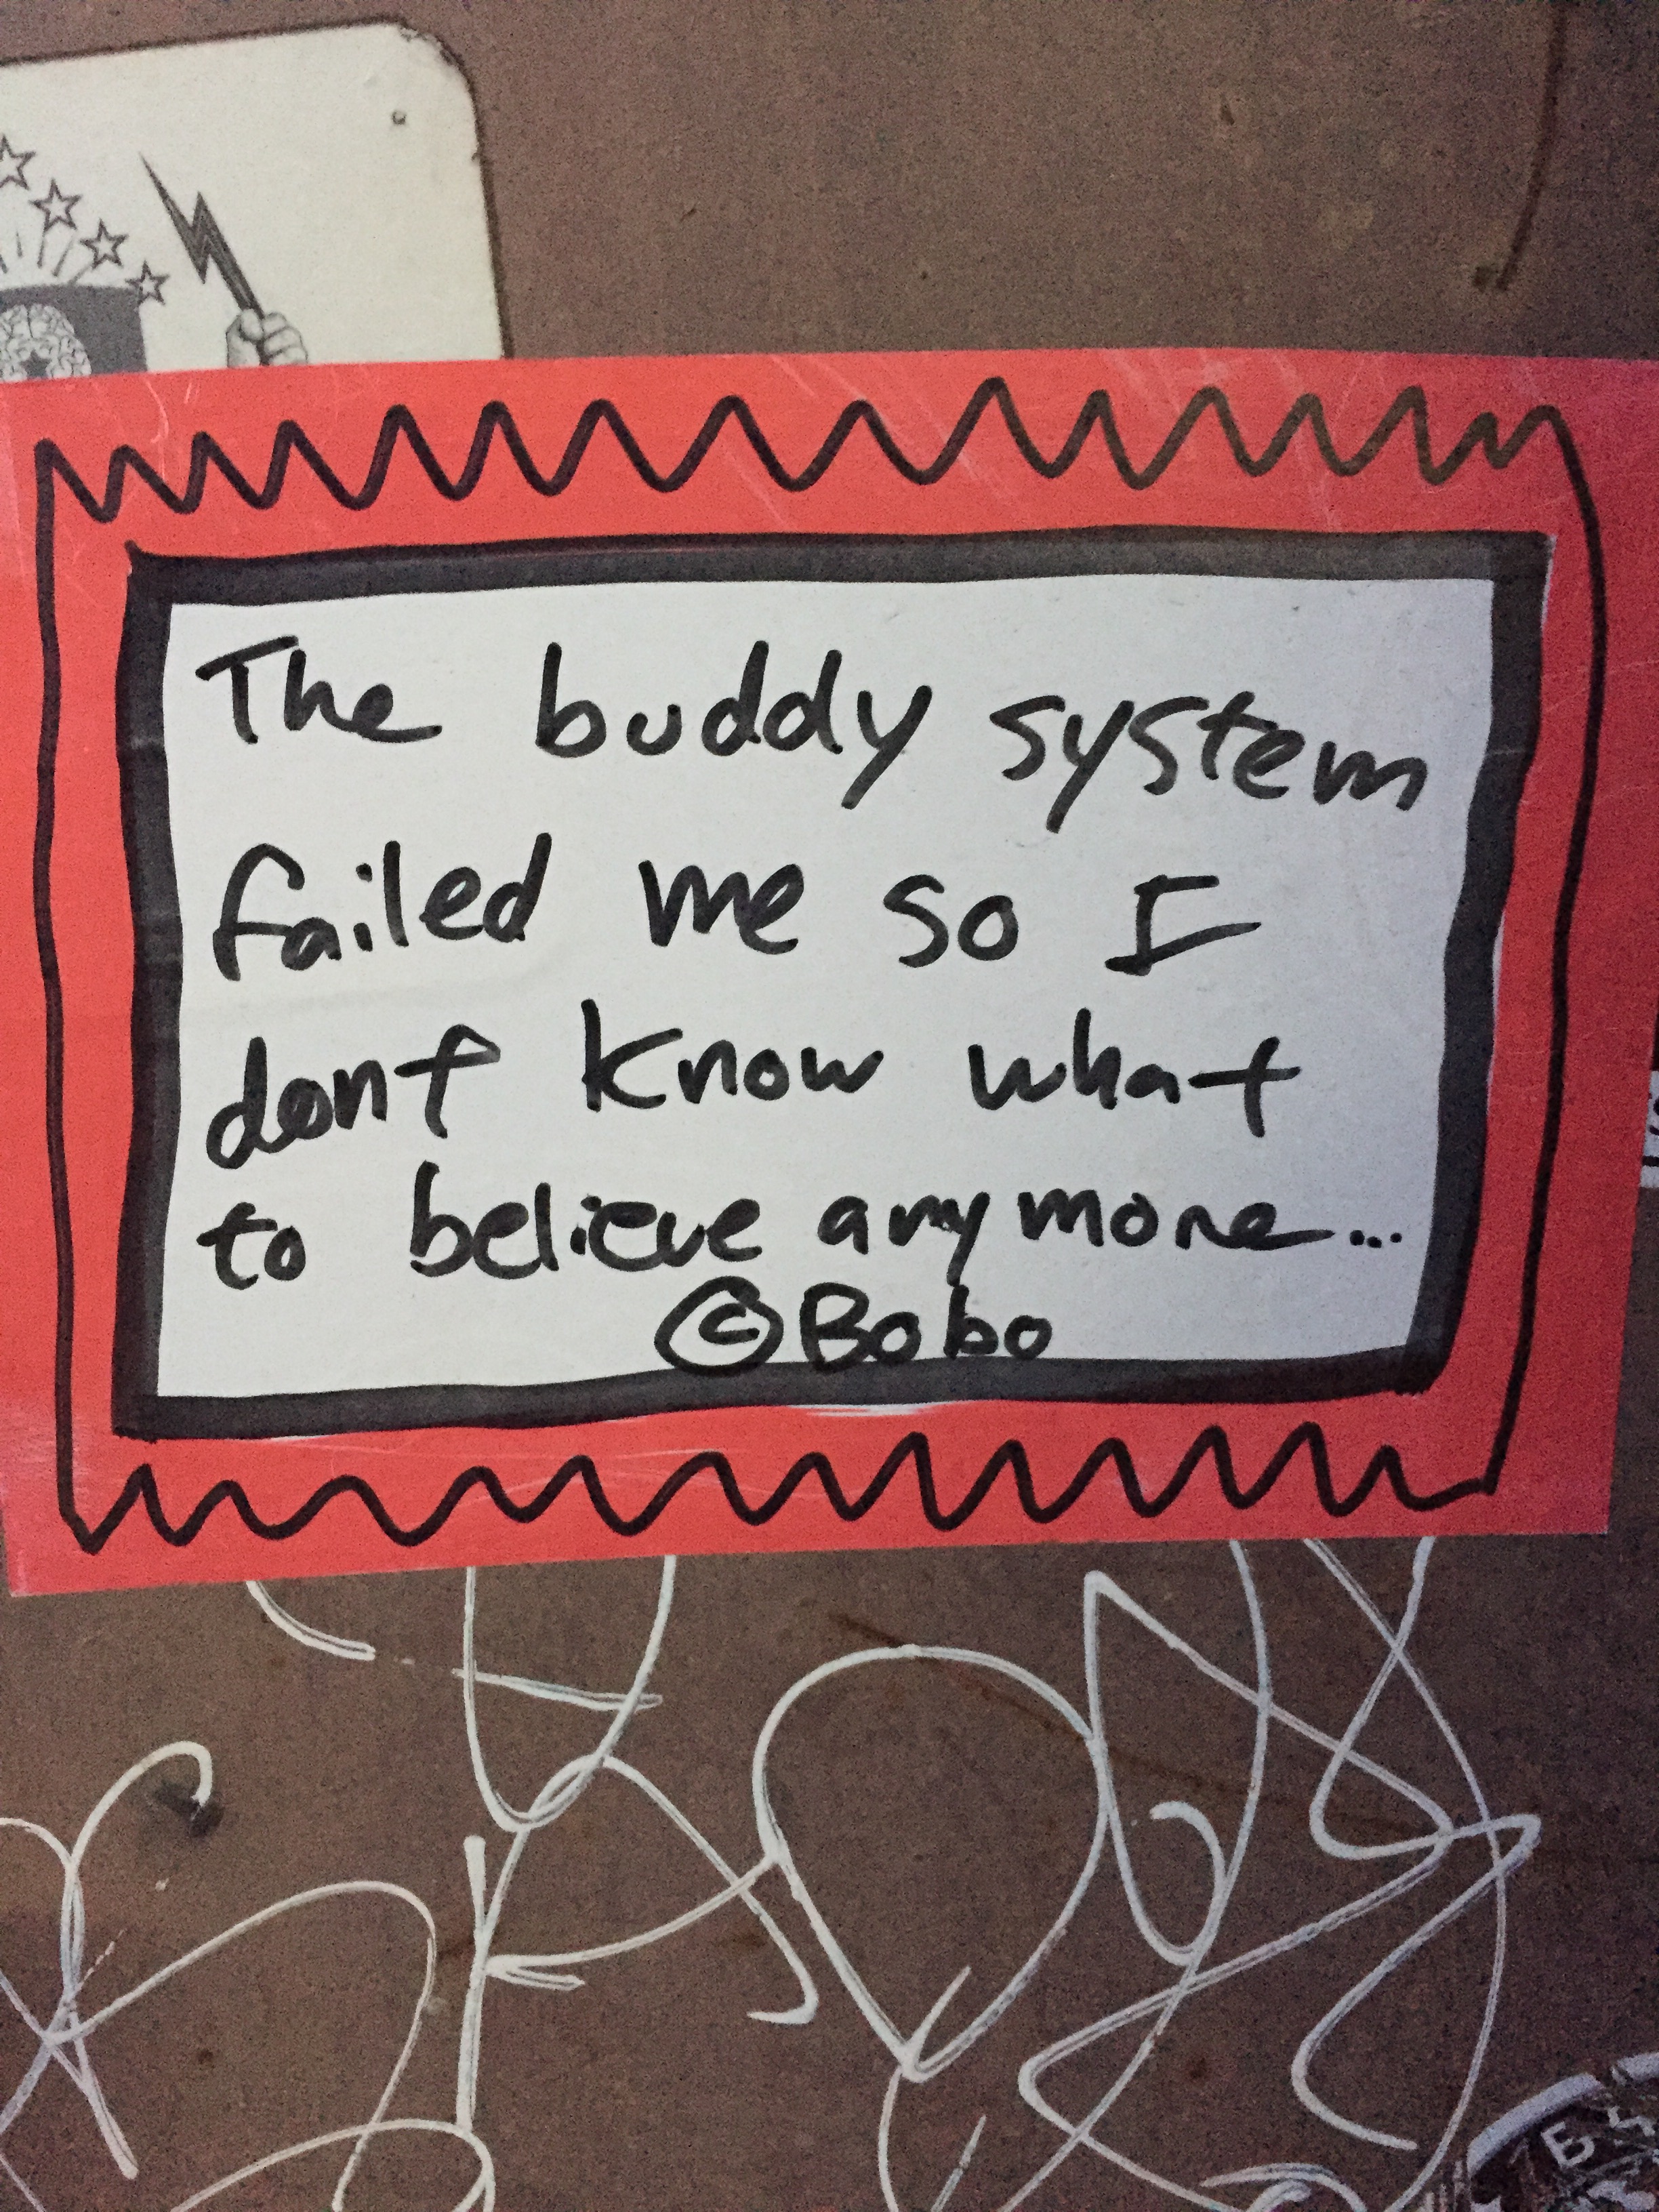 The buddy system
failed me so I
dont know what
to believe anymore...
©Bobo